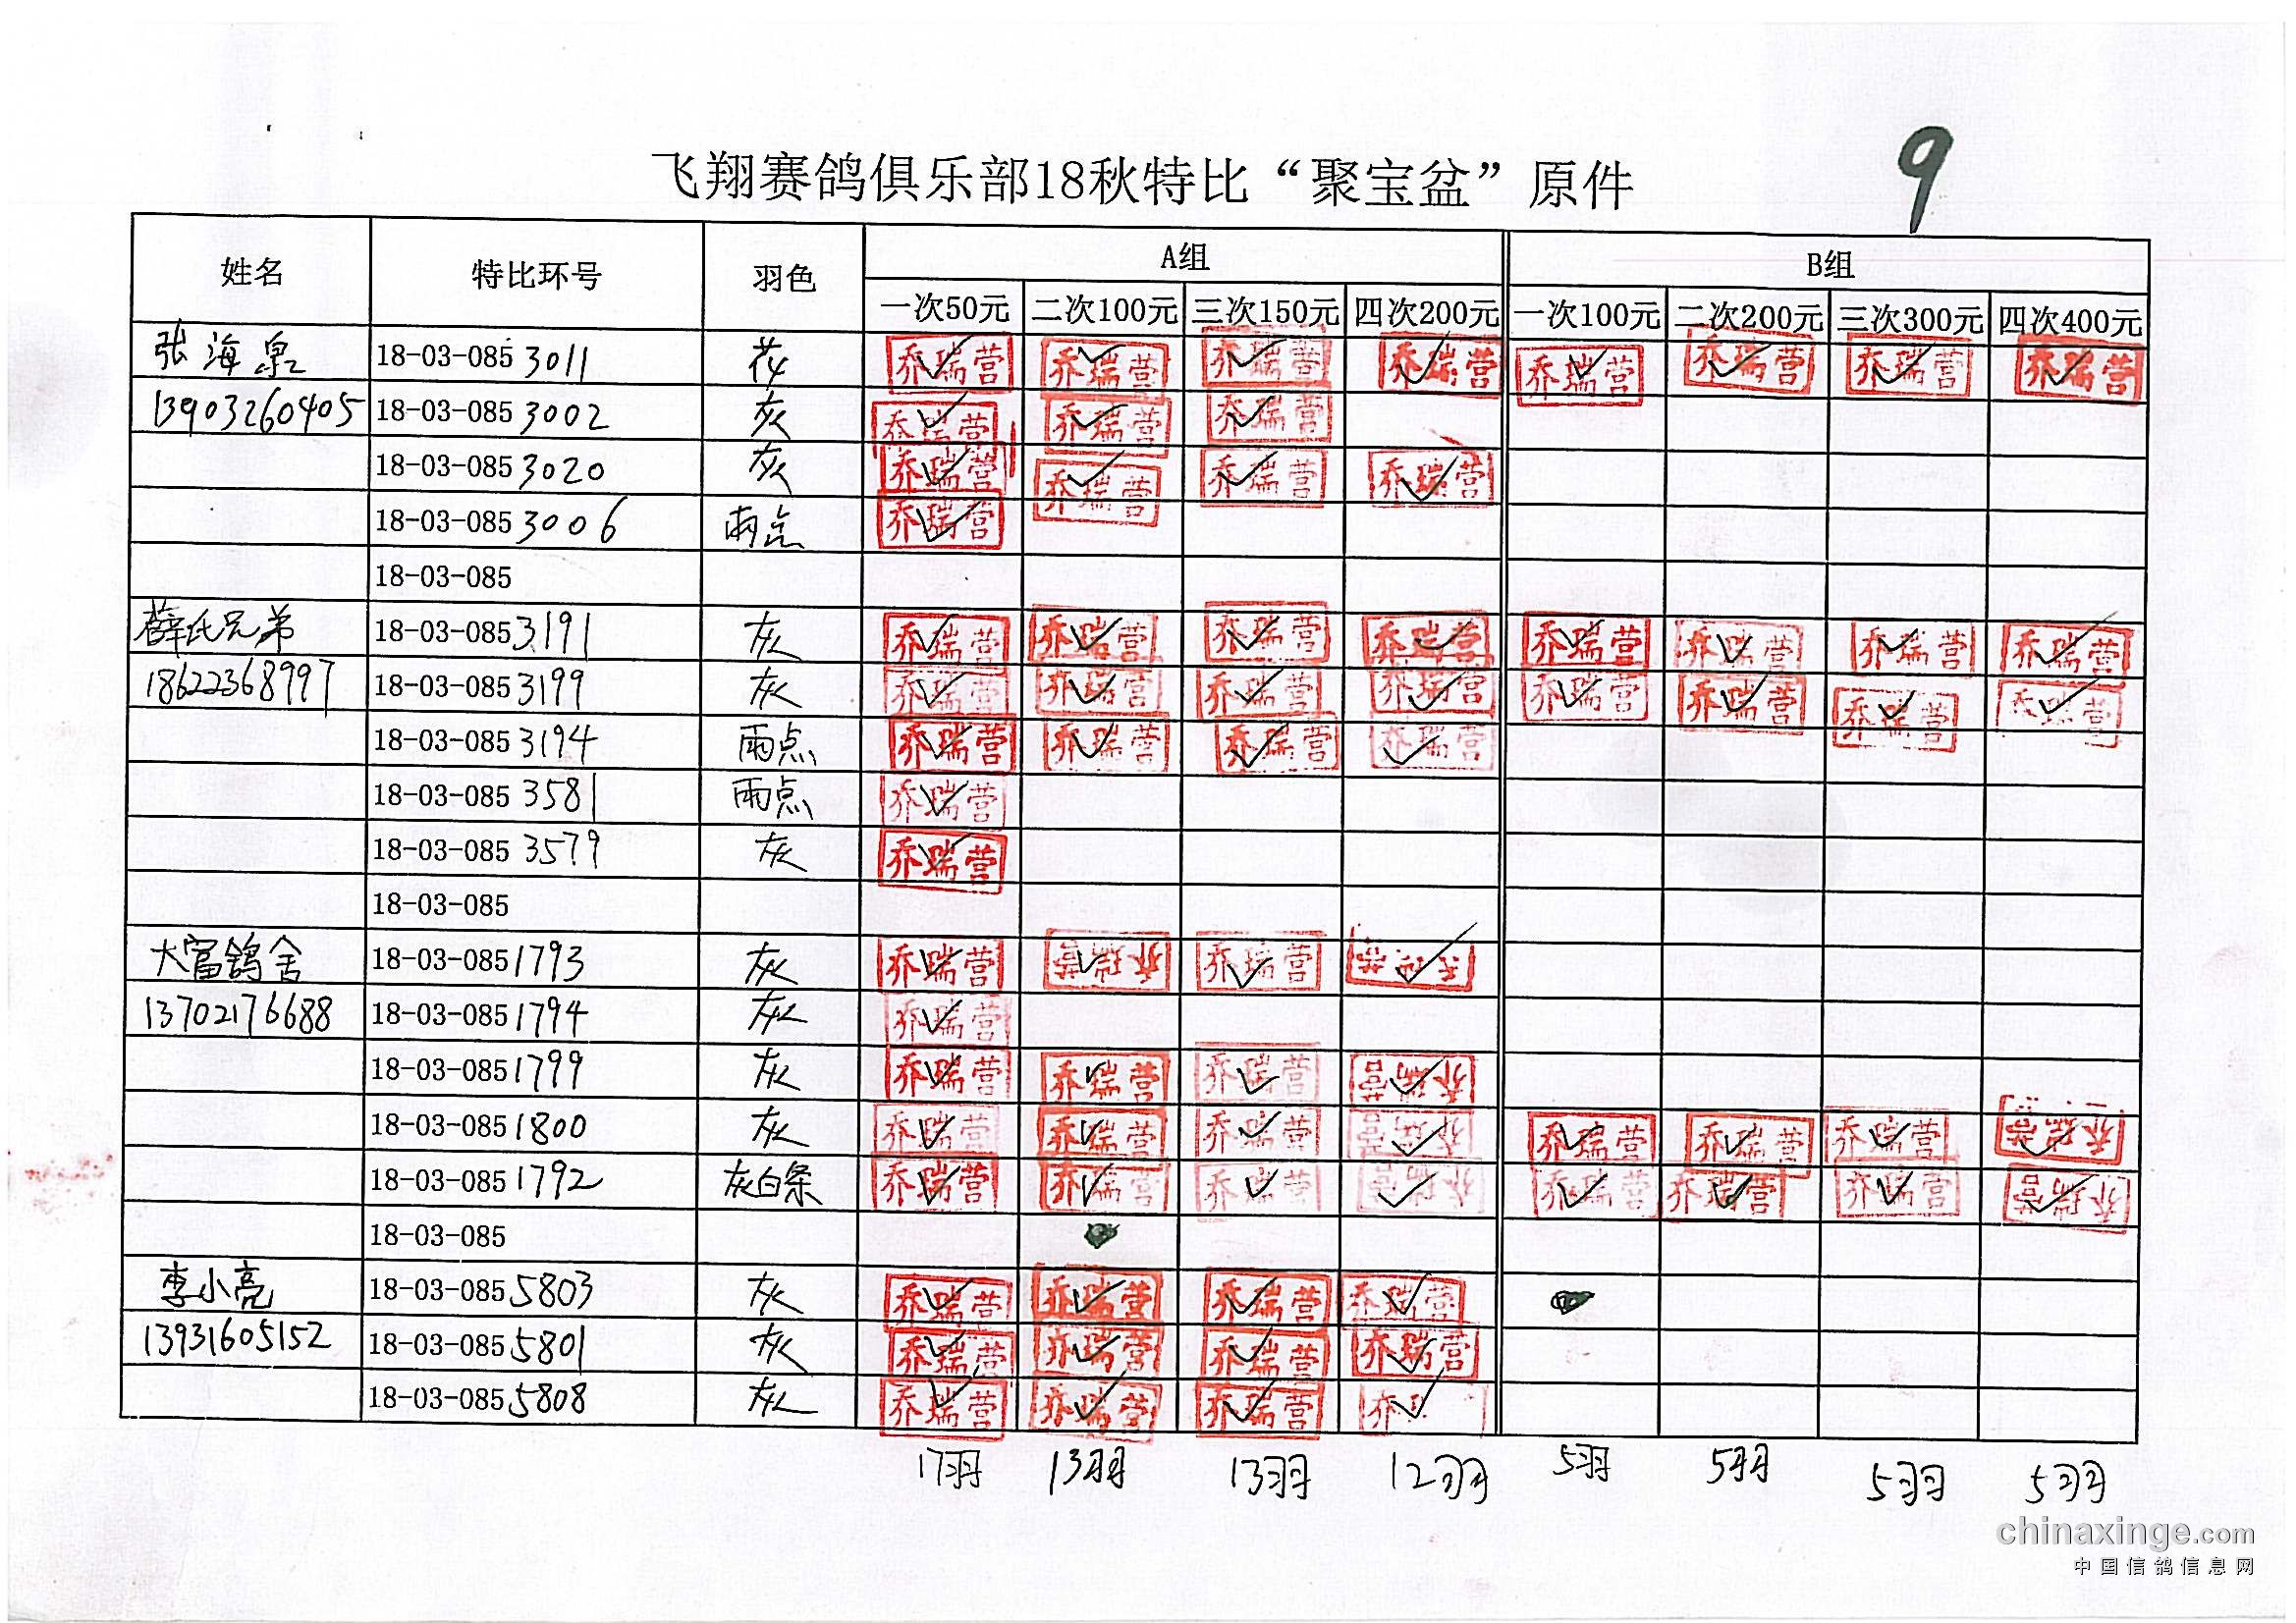 飞翔赛鸽俱乐部18秋特比“聚宝盆”原件
9
姓名 特比环号 羽色 A组 B组
一次50元 二次100元 三次150元 四次200元 一次100元 二次200元 三次300元 四次400元
张海泉 18-03-085 3011 花 乔瑞营 乔瑞营 乔瑞营 乔瑞营 乔瑞营 乔瑞营 乔瑞营 乔瑞营
13903260405 18-03-085 3002 灰 乔瑞营 乔瑞营 乔瑞营
18-03-085 3020 灰 乔瑞营 乔瑞营 乔瑞营 乔瑞营
18-03-085 3006 雨点 乔瑞营
18-03-085
薛氏兄弟 18-03-085 3191 灰 乔瑞营 乔瑞营 乔瑞营 乔瑞营 乔瑞营 乔瑞营 乔瑞营 乔瑞营
18622368997 18-03-085 3199 灰 乔瑞营 乔瑞营 乔瑞营 乔瑞营 乔瑞营 乔瑞营 乔瑞营 乔瑞营
18-03-085 3194 雨点 乔瑞营 乔瑞营 乔瑞营 乔瑞营
18-03-085 3581 雨点 乔瑞营
18-03-085 3579 灰 乔瑞营
18-03-085
大富鸽舍 18-03-085 1793 灰 乔瑞营 乔瑞营 乔瑞营 乔瑞营
13702176688 18-03-085 1794 灰 乔瑞营
18-03-085 1799 灰 乔瑞营 乔瑞营 乔瑞营 乔瑞营
18-03-085 1800 灰 乔瑞营 乔瑞营 乔瑞营 乔瑞营 乔瑞营 乔瑞营 乔瑞营 乔瑞营
18-03-085 1792 灰白条 乔瑞营 乔瑞营 乔瑞营 乔瑞营 乔瑞营 乔瑞营 乔瑞营 乔瑞营
18-03-085
李小亮 18-03-085 5803 灰 乔瑞营 乔瑞营 乔瑞营 乔瑞营
13931605152 18-03-085 5801 灰 乔瑞营 乔瑞营 乔瑞营 乔瑞营
18-03-085 5808 灰 乔瑞营 乔瑞营 乔瑞营 乔
17羽 13羽 13羽 12羽 5羽 5羽 5羽 5羽
chinaxinge.com
中国信鸽信息网